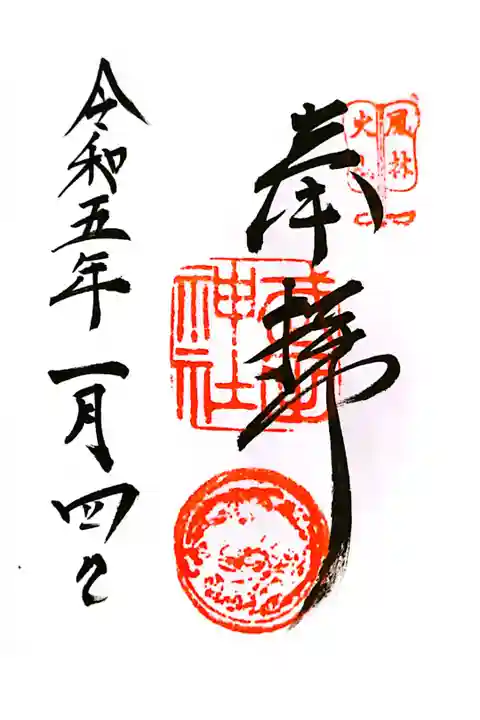 風林
火
奉拝
武田
神社
令和五年一月四日